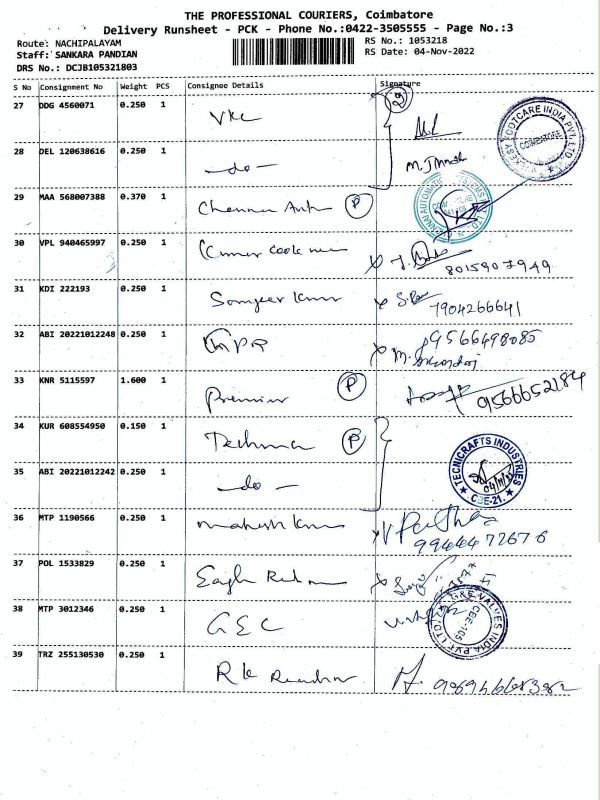 THE PROFESSIONAL COURIERS, Coimbatore
Delivery Runsheet - PCK - Phone No.:0422-3505555 - Page No.:3
Route: NACHIPALAYAM
RS No.: 1053218
Staff: SANKARA PANDIAN
RS Date: 04-Nov-2022
DRS No.: DCJB105321803
S No Consignment No Weight PCS Consignee Details Signature
27 DDG 4560071 0.250 1 VKC
28 DEL 120638616 0.250 1 -do-
29 MAA 568007388 0.370 1 Chennai Auto P
30 VPL 940465997 0.250 1
8015907949
31 KDI 222193 0.250 1 Kumar
7904266641
32 ABI 20221012248 0.250 1
9566498085
33 KNR 5115597 1.600 1 Premier P 9566652184
34 KUR 608554950 0.150 1 P
TECNICRAFTS INDUSTRIES
CBE-21.
35 ABI 20221012242 0.250 1 -do-
36 MTP 1190566 0.250 1 Mahesh Kumar
9944472676
37 POL 1533829 0.250 1 Eagle
38 MTP 3012346 0.250 1 GEC
VALVES INDIA PVT. LTD.
39 TRZ 255130530 0.250 1 RK